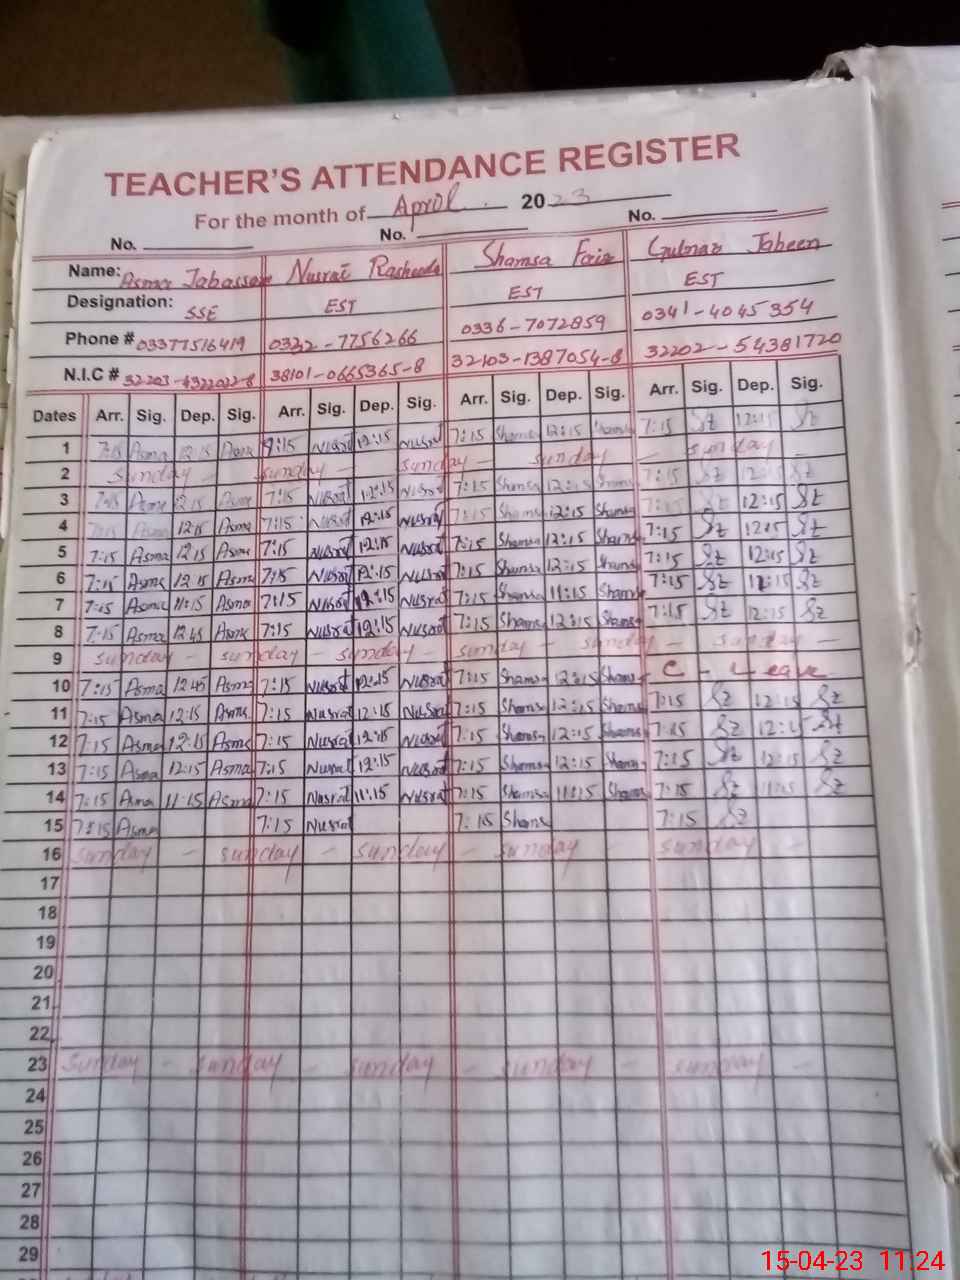 TEACHER'S ATTENDANCE REGISTER
For the month of April 2023
No. No. No.
Name: Asma Tabassam Nusrat Rasheeda Shamsa Faiz Gulnaz Jabeen
Designation: SSE EST EST EST
Phone # 03377516419 0332-7756266 0336-7072859 0341-4045354
N.I.C # 32203-4322022-8 38101-0665365-8 32103-1387054-8 32202-54381720
Dates Arr. Sig. Dep. Sig. Arr. Sig. Dep. Sig. Arr. Sig. Dep. Sig. Arr. Sig. Dep. Sig.
1 7:15 Asma 12:15 Asma 7:15 Nusrat 12:15 Nusrat 7:15 Shamsa 12:15 Shamsa 7:15 Sz 12:15 Sz
2 sunday - sunday - sunday - sunday - sunday
3 7:15 Asma 12:15 Asma 7:15 Nusrat 12:15 Nusrat 7:15 Shamsa 12:15 Shamsa 7:15 Sz 12:15 Sz
4 7:15 Asma 12:15 Asma 7:15 Nusrat 12:15 Nusrat 7:15 Shamsa 12:15 Shamsa 7:15 Sz 12:15 Sz
5 7:15 Asma 12:15 Asma 7:15 Nusrat 12:15 Nusrat 7:15 Shamsa 12:15 Shamsa 7:15 Sz 12:15 Sz
6 7:15 Asma 12:15 Asma 7:15 Nusrat 12:15 Nusrat 7:15 Shamsa 12:15 Shamsa 7:15 Sz 12:15 Sz
7 7:15 Asma 11:15 Asma 7:15 Nusrat 12:15 Nusrat 7:15 Shamsa 11:15 Shamsa 7:15 Sz 11:15 Sz
8 7:15 Asma 12:45 Asma 7:15 Nusrat 12:15 Nusrat 7:15 Shamsa 12:15 Shamsa 7:15 Sz 12:15 Sz
9 sunday - sunday - sunday - sunday - sunday - sunday -
10 7:15 Asma 12:45 Asma 7:15 Nusrat 12:15 Nusrat 7:15 Shamsa 12:15 Shamsa C - Leave
11 7:15 Asma 12:15 Asma 7:15 Nusrat 12:15 Nusrat 7:15 Shamsa 12:15 Shamsa 7:15 Sz 12:15 Sz
12 7:15 Asma 12:15 Asma 7:15 Nusrat 12:15 Nusrat 7:15 Shamsa 12:15 Shamsa 7:15 Sz 12:15 Sz
13 7:15 Asma 12:15 Asma 7:15 Nusrat 12:15 Nusrat 7:15 Shamsa 12:15 Shamsa 7:15 Sz 12:15 Sz
14 7:15 Asma 11:15 Asma 7:15 Nusrat 11:15 Nusrat 7:15 Shamsa 11:15 Shamsa 7:15 Sz 11:15 Sz
15 7:15 Asma 7:15 Nusrat 7:15 Shams 7:15 Sz
16 sunday - sunday - sunday - sunday - sunday -
17
18
19
20
21
22
23 sunday - sunday - sunday - sunday - sunday -
24
25
26
27
28
29
15-04-23 11:24